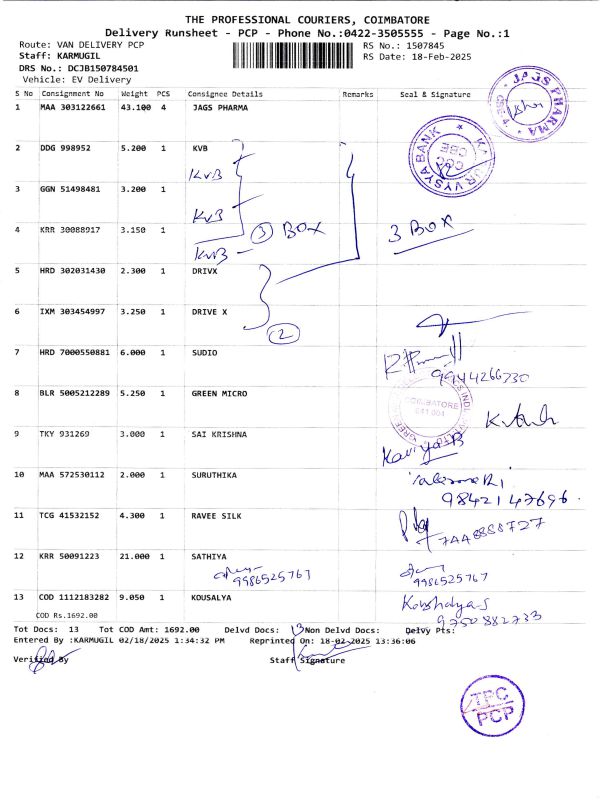 THE PROFESSIONAL COURIERS, COIMBATORE
Delivery Runsheet - PCP - Phone No.:0422-3505555 - Page No.:1
Route: VAN DELIVERY PCP RS No.: 1507845
Staff: KARMUGIL RS Date: 18-Feb-2025
DRS No.: DCJB150784501
Vehicle: EV Delivery
S No Consignment No Weight PCS Consignee Details Remarks Seal & Signature
1 MAA 303122661 43.100 4 JAGS PHARMA
JAGS PHARMA
KARUR VYSYA BANK
CBE
2 DDG 998952 5.200 1 KVB
KVB
3 GGN 51498481 3.200 1
KVB
4 KRR 30088917 3.150 1
3 BOX 3 BOX
KVB
5 HRD 302031430 2.300 1 DRIVX
6 IXM 303454997 3.250 1 DRIVE X
2
7 HRD 7000550881 6.000 1 SUDIO
9944266730
8 BLR 5005212289 5.250 1 GREEN MICRO
COIMBATORE
641 001
9 TKY 931269 3.000 1 SAI KRISHNA
Kaviya B
10 MAA 572530112 2.000 1 SURUTHIKA
9842147696
11 TCG 41532152 4.300 1 RAVEE SILK
7448888727
12 KRR 50091223 21.000 1 SATHIYA
9986525767 9986525767
13 COD 1112183282 9.050 1 KOUSALYA
Koushalya S
COD Rs.1692.00
9750882733
Tot Docs: 13 Tot COD Amt: 1692.00 Delvd Docs: 13 Non Delvd Docs: Delvy Pts:
Entered By :KARMUGIL 02/18/2025 1:34:32 PM Reprinted On: 18-02-2025 13:36:06
Verified By Staff Signature
TPC
PCP